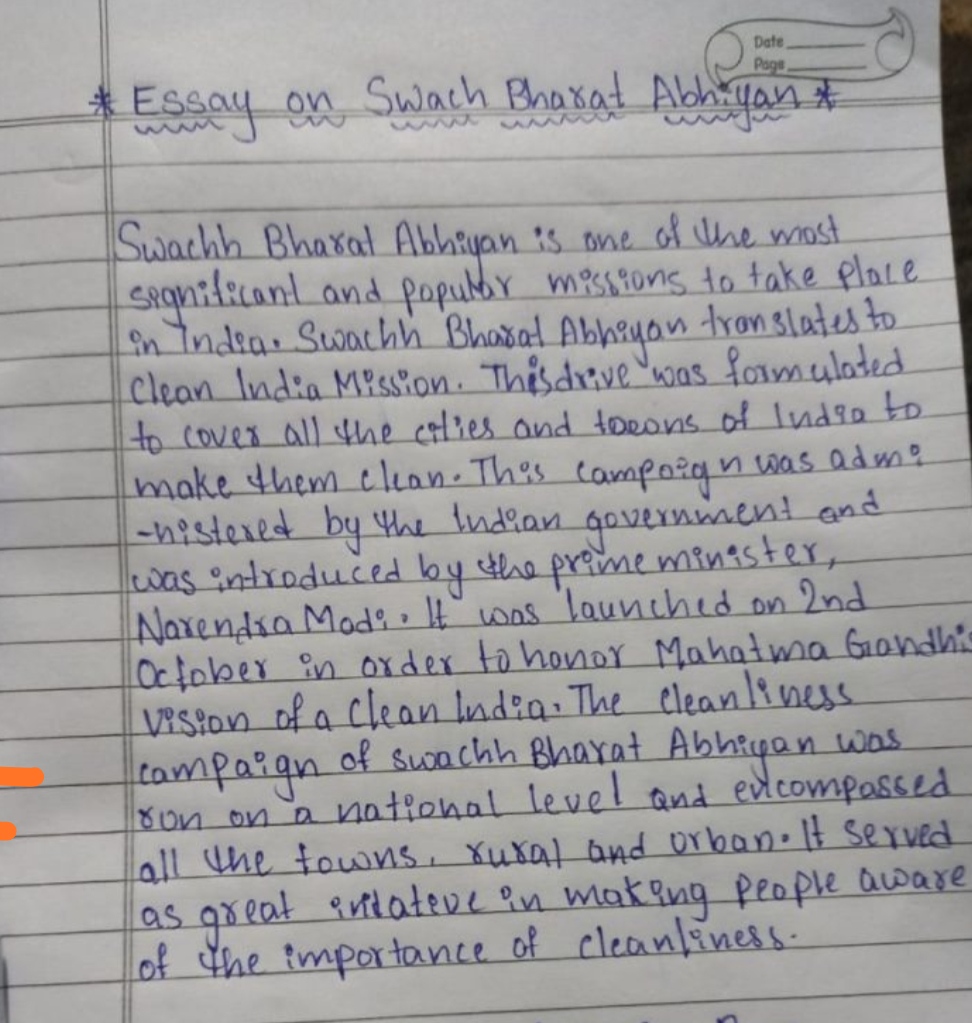 Date
Page
* Essay on Swach Bharat Abhiyan *
Swachh Bharat Abhiyan is one of the most
significant and popular missions to take place
in India. Swachh Bharat Abhiyan translates to
Clean India Mission. This drive was formulated
to cover all the cities and towns of India to
make them clean. This campaign was admi
-nistered by the Indian government and
was introduced by the prime minister,
Narendra Modi. It was launched on 2nd
October in order to honor Mahatma Gandhi
vision of a Clean India. The cleanliness
campaign of swachh Bharat Abhiyan was
run on a national level and encompassed
all the towns, rural and urban. It served
as great in making people aware
of the importance of cleanliness.